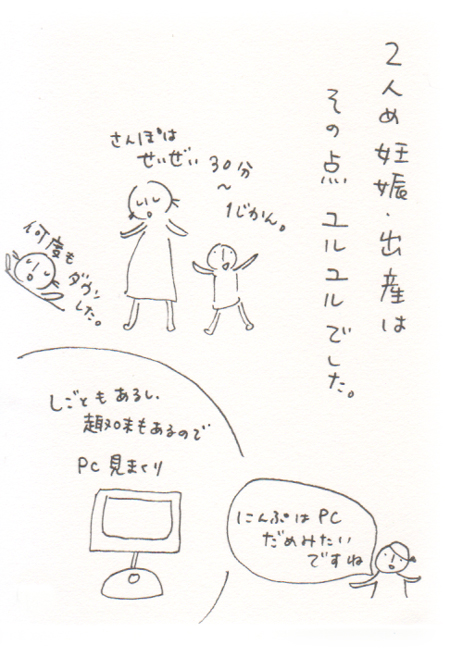 2人め 妊娠・出産は
その点 ユルユルでした。
さんぽは
せいぜい 30分
〜
1じかん。
何度も
ダウン
した。
しごともあるし、
趣味もあるので
PC 見まくり
にんぷは PC
だめみたい
ですね